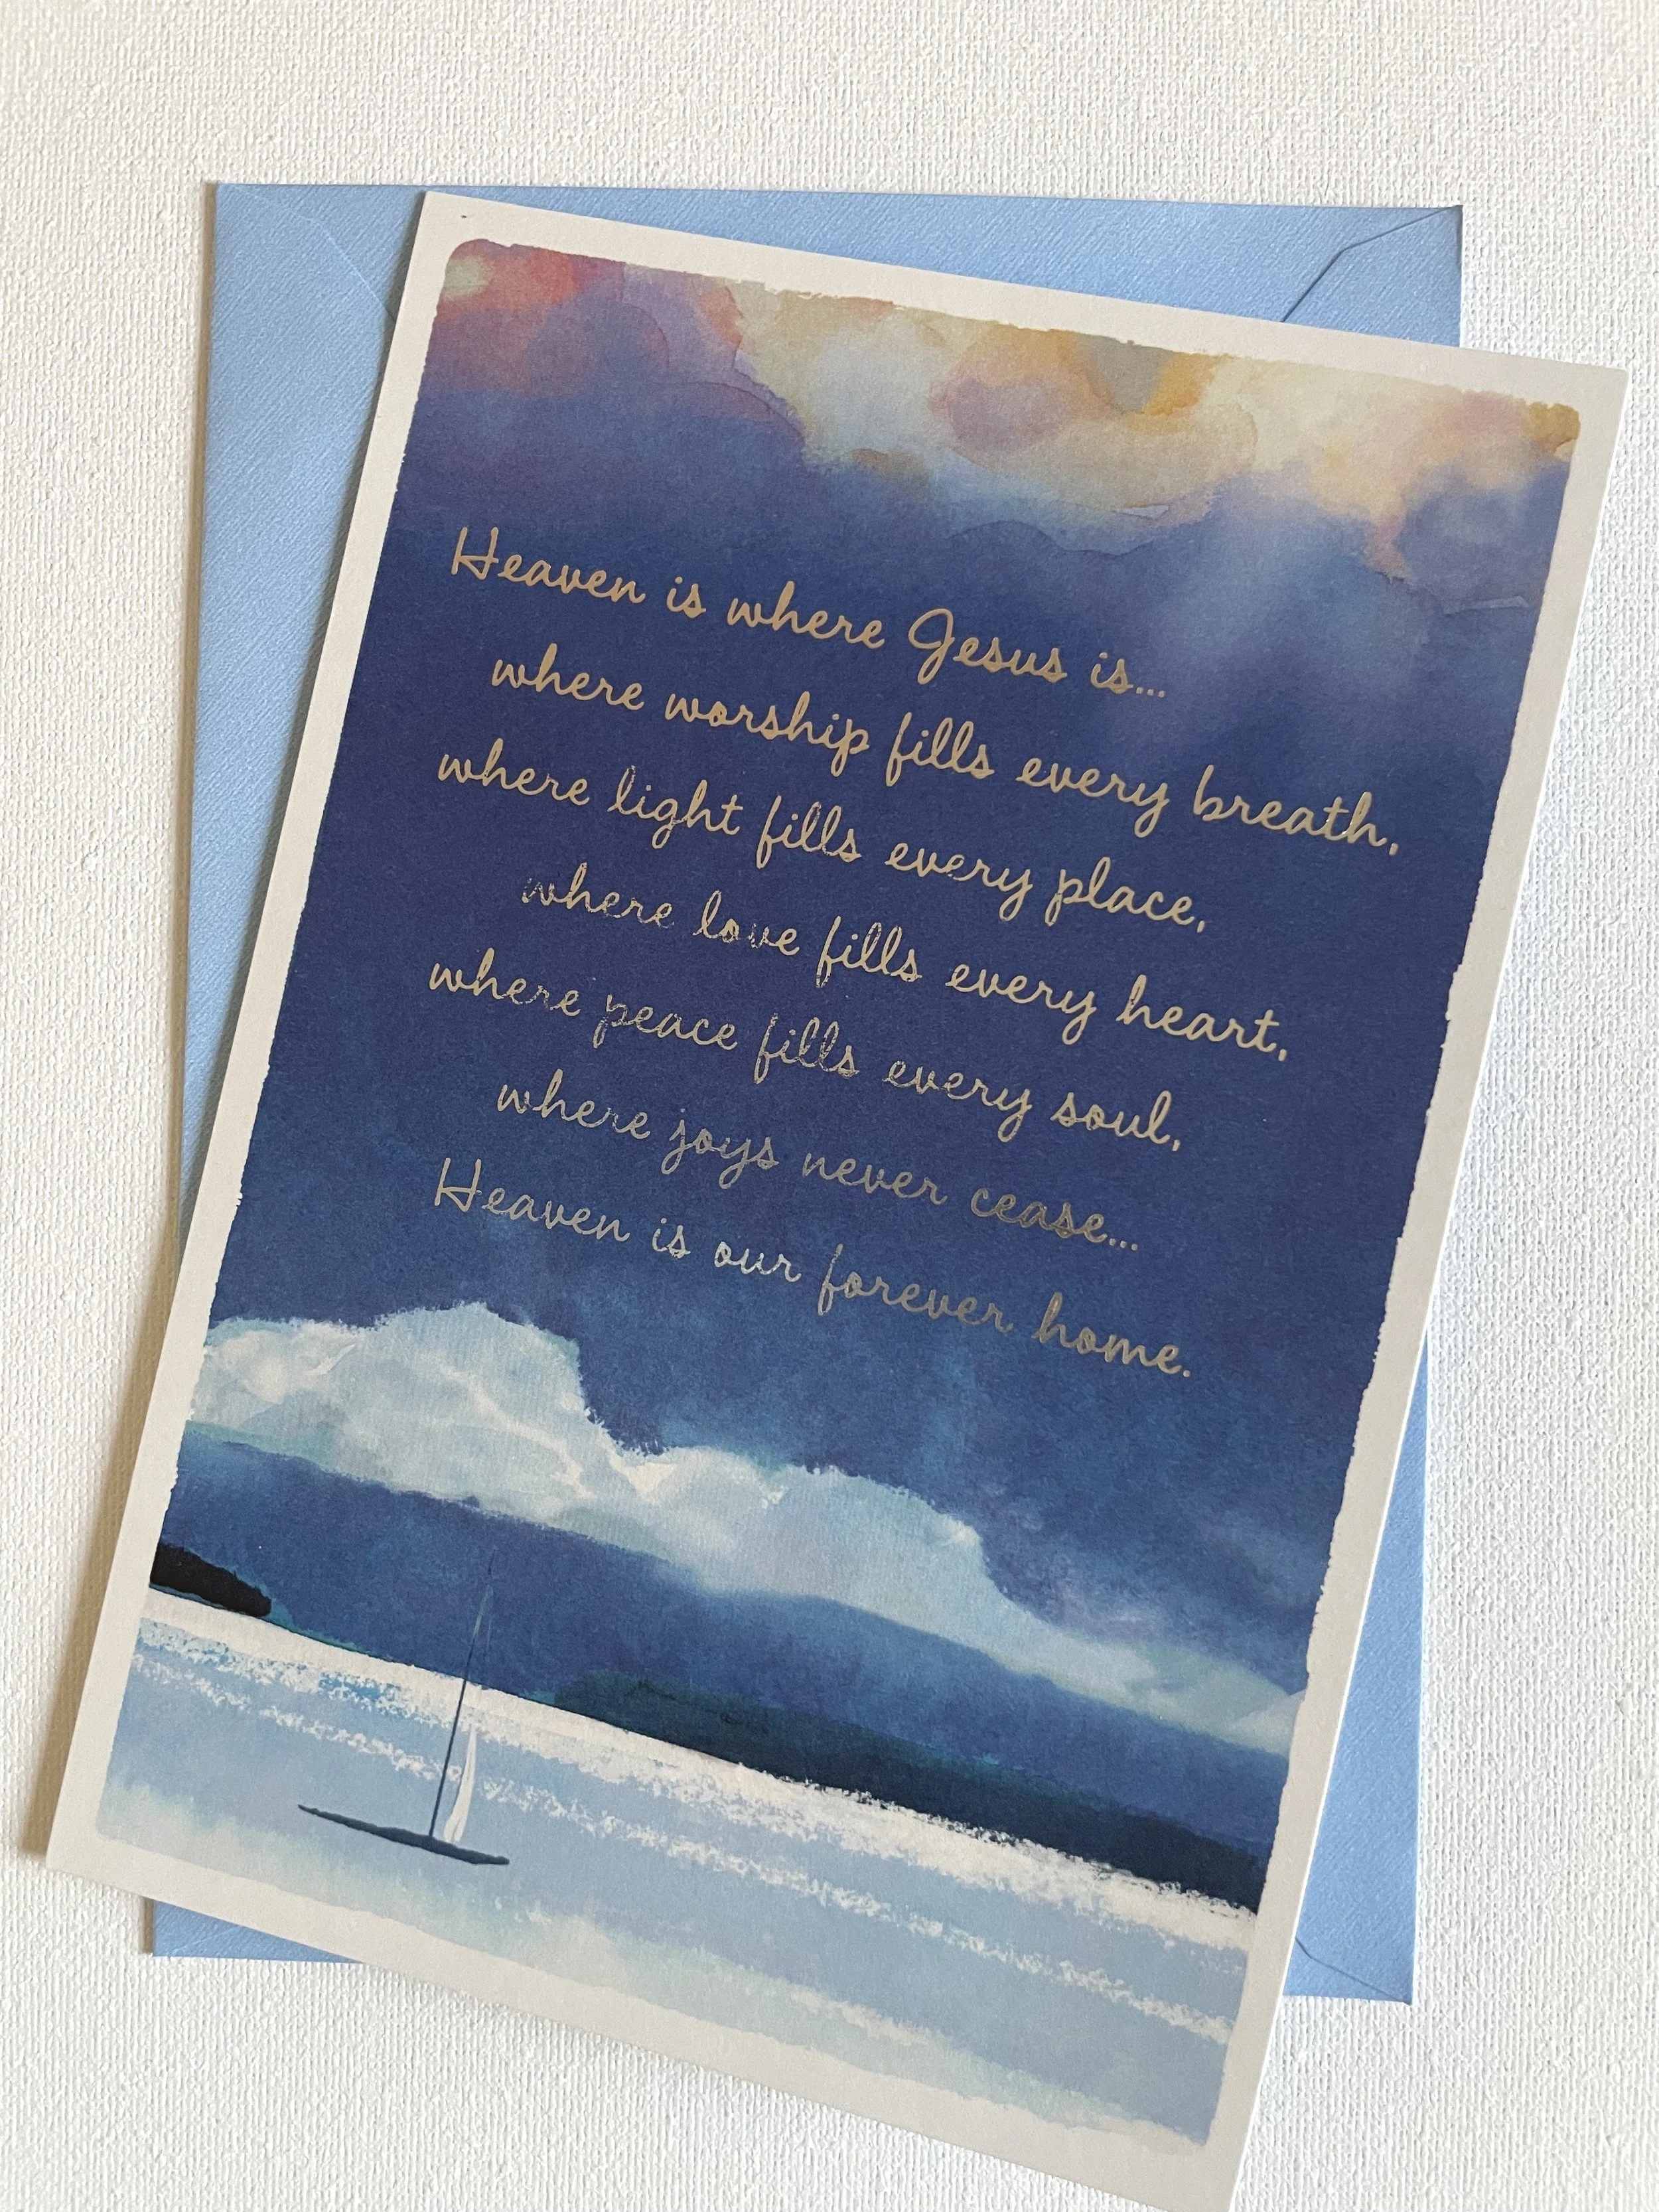 Heaven is where Jesus is...
where worship fills every breath,
where light fills every place,
where love fills every heart,
where peace fills every soul,
where joys never cease...
Heaven is our forever home.